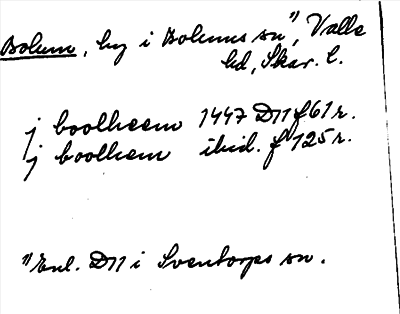 Bolum, by i Bolums sn¹⁾, Valle
hd, Skar. l.
j boolheem 1447 D11 f 61 r.
j boolhem ibid. f 125 r.
¹⁾ Enl. D11 i Sventorps sn.